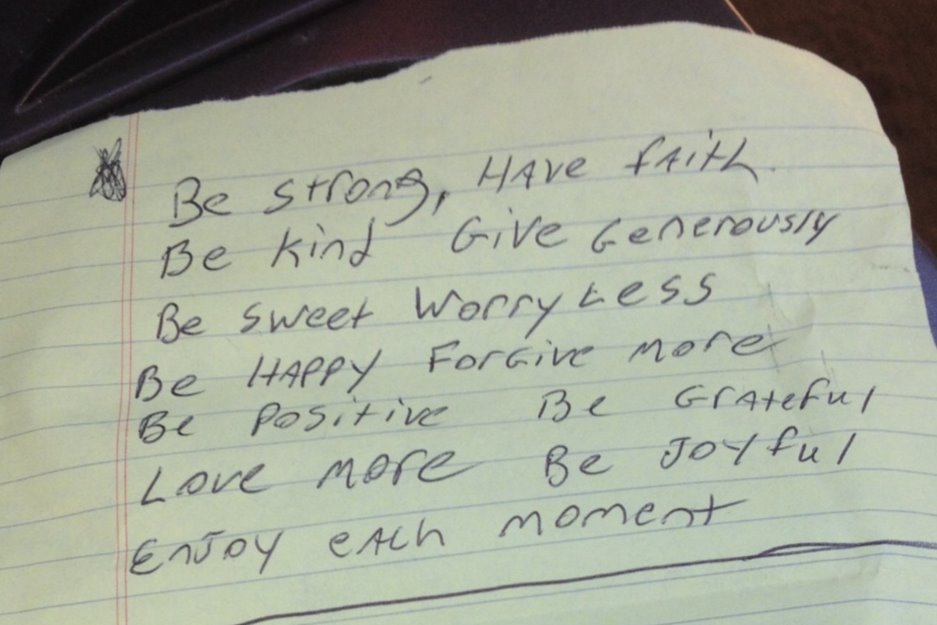 Be strong, HAve fAith.
Be kind Give Generously
Be sweet Worry Less
Be HAPPY ForGive more
Be Positive Be GrAteful
Love more Be Joyful
Enjoy eAch moment